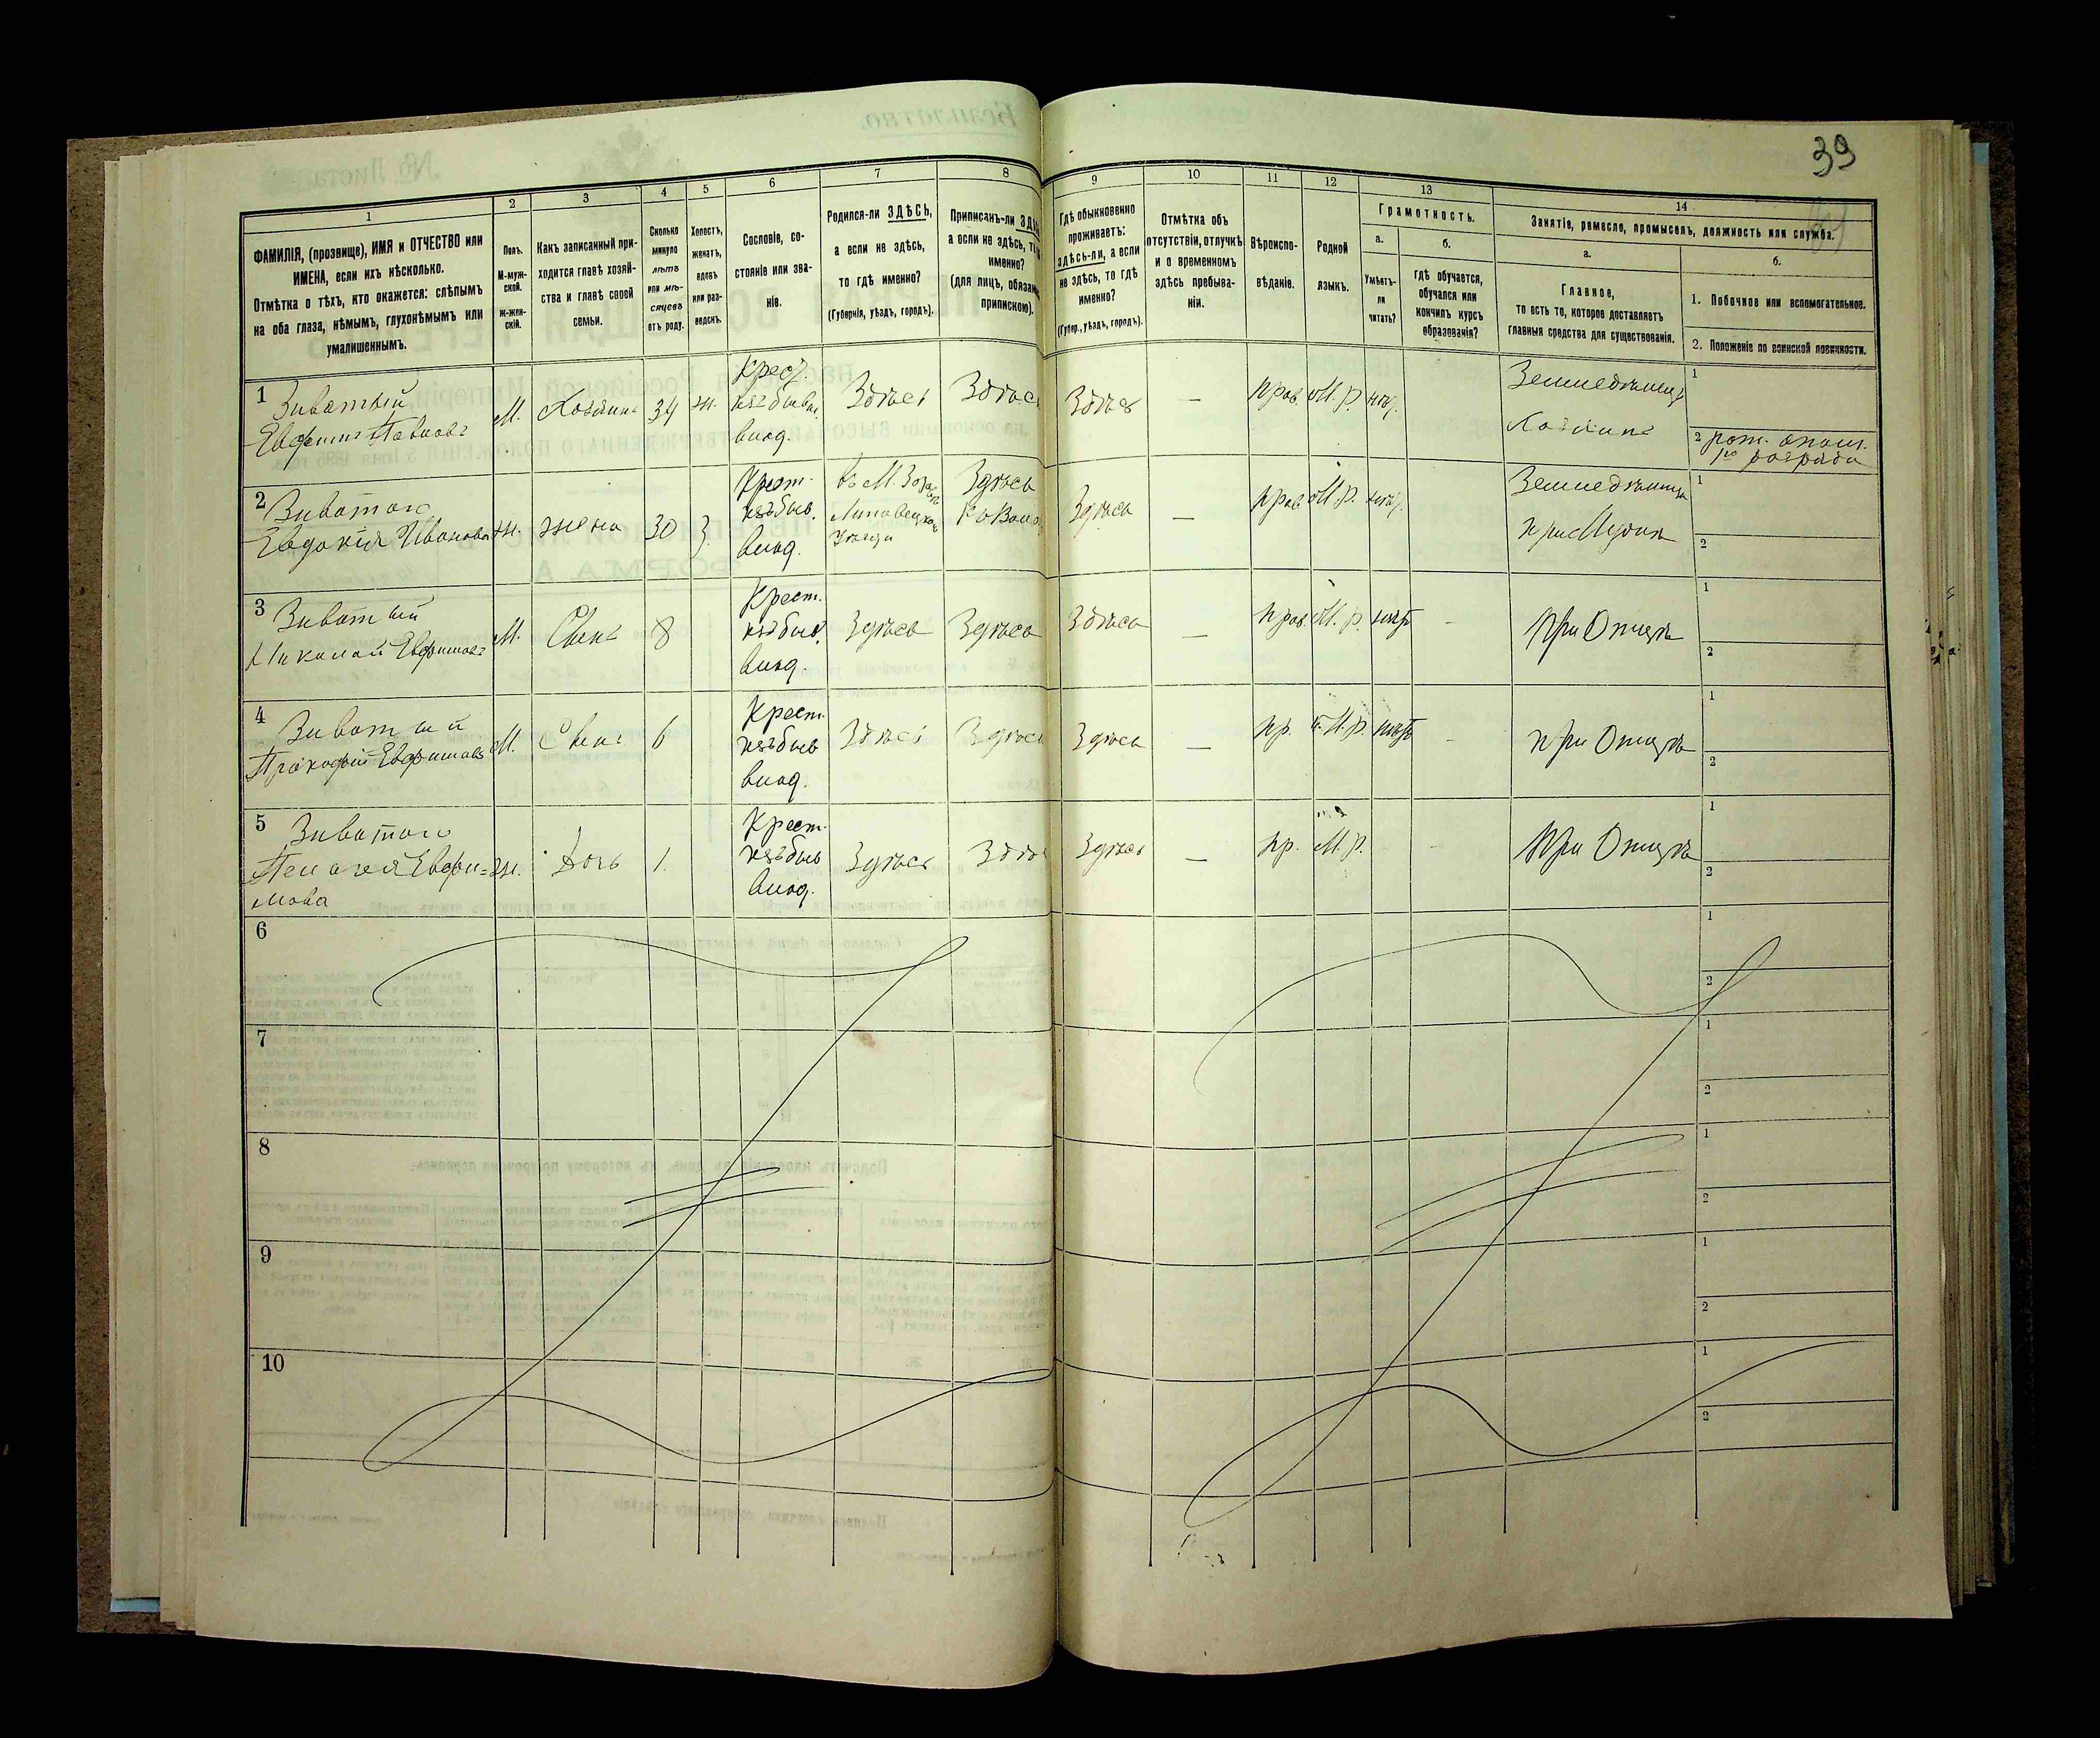 39
1
ФАМИЛІЯ, (прозвище), ИМЯ и ОТЧЕСТВО или
ИМЕНА, если ихъ нѣсколько.
Отмѣтка о тѣхъ, кто окажется: слѣпымъ
на оба глаза, нѣмымъ, глухонѣмымъ или
умалишеннымъ.
2
Полъ.
М-муж-
ской.
Ж-жен-
скій.
3
Какъ записанный при-
ходится главѣ хозяй-
ства и главѣ своей
семьи.
4
Сколько
минуло
лѣтъ
или мѣ-
сяцевъ
отъ роду.
5
Холостъ,
женатъ,
вдовъ
или раз-
веденъ.
6
Сословіе, со-
стояніе или зва-
ніе.
7
Родился-ли ЗДѢСЬ,
а если не здѣсь,
то гдѣ именно?
(Губернія, уѣздъ, городъ).
8
Приписанъ-ли
а если не здѣсь,
именно?
(для лицъ,
припискою).
9
Гдѣ обыкновенно
проживаетъ:
здѣсь-ли, а если
не здѣсь, то гдѣ
именно?
(Губер., уѣздъ, городъ).
10
Отмѣтка объ
отсутствіи, отлучкѣ
и о временномъ
здѣсь пребыва-
ніи.
11
Вѣроиспо-
вѣданіе.
12
Родной
языкъ.
13
Грамотность.
а.
Умѣетъ-
ли
читать?
б.
гдѣ обучается,
обучался или
кончилъ курсъ
образованія?
14
Занятіе, ремесло, промыселъ, должность или служба.
а.
Главное,
то есть то, которое доставляетъ
главныя средства для существованія.
б.
1. Побочное или вспомогательное.
2. Положеніе по воинской повинности.
1
Зиватый
Евфимъ Павловъ
М.
Хозяинъ
34
ж.
Крест.
влад.
Здѣсь
Здѣсь
Здѣсь
—
прав.
М. р.
нѣт.
Земледѣлецъ
Хозяинъ
1
2
разряда
2
Зиватая
Евдокія Иванова
ж.
жена
30
З.
Крест.
влад.
въ М.
Липовецкаго
Уѣзда
Здѣсь
Здѣсь
—
прав.
М. р.
нѣт.
Земледѣлица
при Мужѣ
1
2
3
Зиватый
Николай Евфимовъ
М.
Сынъ
8
Крест.
влад.
Здѣсь
Здѣсь
Здѣсь
—
прав.
М. р.
нѣтъ
при Отцѣ
1
2
4
Зиватый
Прокофій Евфимовъ
М.
Сынъ
6
Крест.
влад.
Здѣсь
Здѣсь
Здѣсь
—
пр.
М. р.
нѣтъ
при Отцѣ
1
2
5
Зиватая
Пелагея Евфи=
мова
ж.
Дочь
1.
Крест.
влад.
Здѣсь
Здѣсь
—
пр.
М. р.
при Отцѣ
1
2
6
1
2
7
1
2
8
1
2
9
1
2
10
1
2